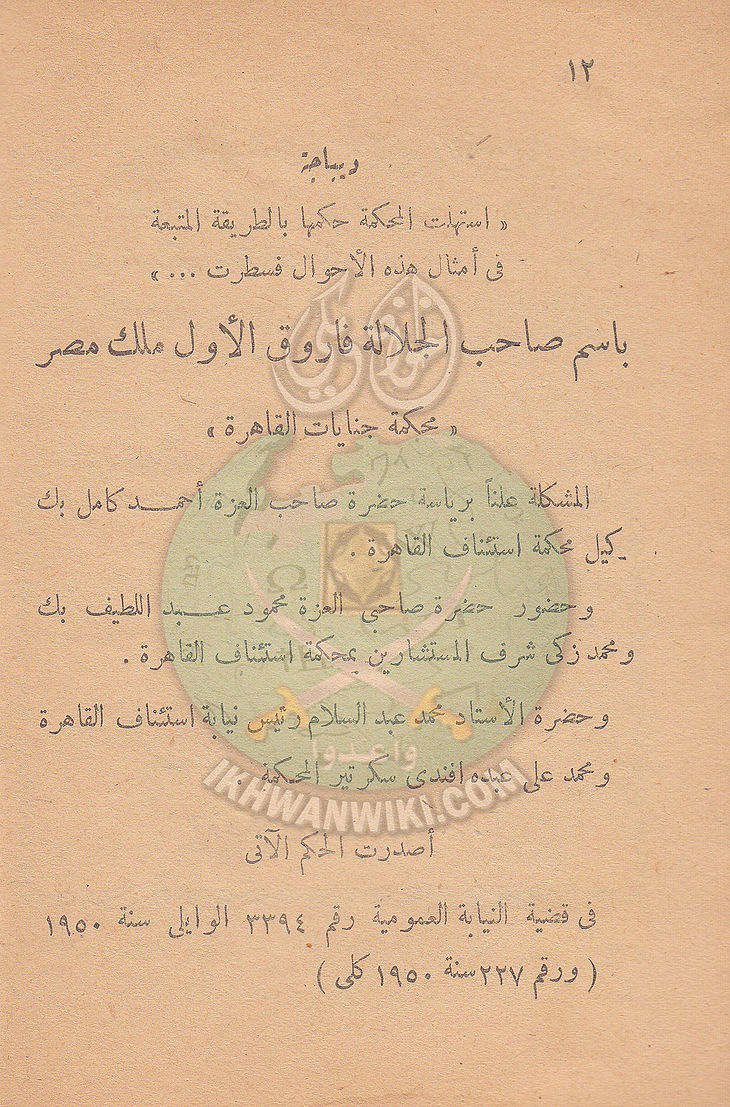 ١٢
ديباجة
« استهلت المحكمة حكمها بالطريقة المتبعة
فى أمثال هذه الأحوال فسطرت ... »
باسم صاحب الجلالة فاروق الأول ملك مصر
« محكمة جنايات القاهرة »
المشكلة علناً برياسة حضرة صاحب العزة أحمد كامل بك
كيل محكمة استئناف القاهرة .
وحضور حضرة صاحبى العزة محمود عبد اللطيف بك
ومحمد زكى شرف المستشارين بمحكمة استئناف القاهرة .
وحضرة الأستاد محمد عبد السلام رئيس نيابة استئناف القاهرة
ومحمد على عبده افندى سكرتير المحكمة .
أصدرت الحكم الآتى
فى قضية النيابة العمومية رقم ٣٣٩٤ الوايلى سنة ١٩٥٠
( ورقم ٢٢٧ سنة ١٩٥٠ كلى )
وأعدوا
IKHWANWIKI.COM